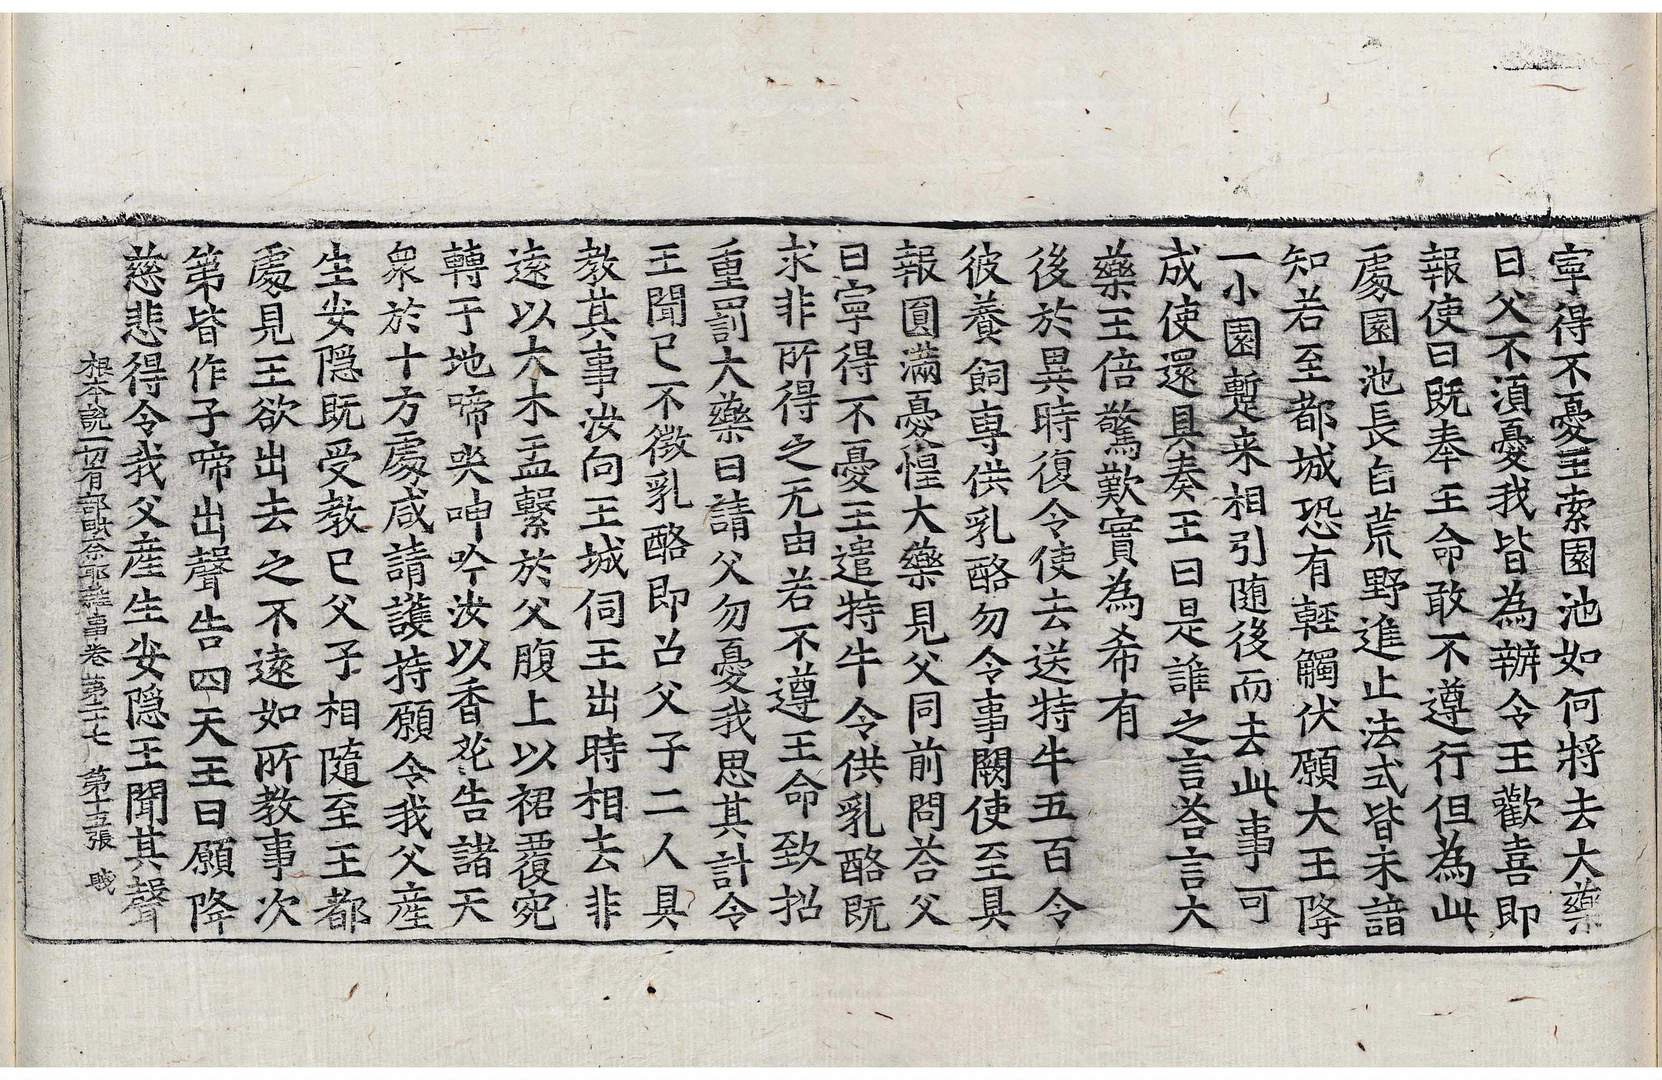 寕得不憂王索園池如何將去大藥
曰父不湏憂我皆為辦令王歡喜即
報使曰既奉王命敢不遵行但為此
處園池長自荒野進止法式皆未諳
知若至都城恐有輕觸伏願大王降
一小園蹔来相引随後而去此事可
成使還具奏王曰是誰之言荅言大
藥王倍驚歎實為希有
後於異時復令使去送特牛五百令
彼養飼専供乳酪勿令事闕使至具
報圓滿憂惶大藥見父同前問荅父
曰寕得不憂王遣特牛令供乳酪既
求非所得之无由若不遵王命致招
重罰大藥曰請父勿憂我思其計令
王聞已不徴乳酪即召父子二人具
教其事汝向王城伺王出時相去非
遠以大木盂繫於父腹上以裙覆宛
轉于地啼哭呻吟汝以香花告諸天
衆於十方處咸請護持願令我父産
生安隠既受教已父子相隨至王都
處見王欲出去之不遠如所教事次
第皆作子啼出聲告四天王曰願降
慈悲得令我父産生安隠王聞其聲
根本說一切有部毗奈耶雜事卷第二十七 第十五張